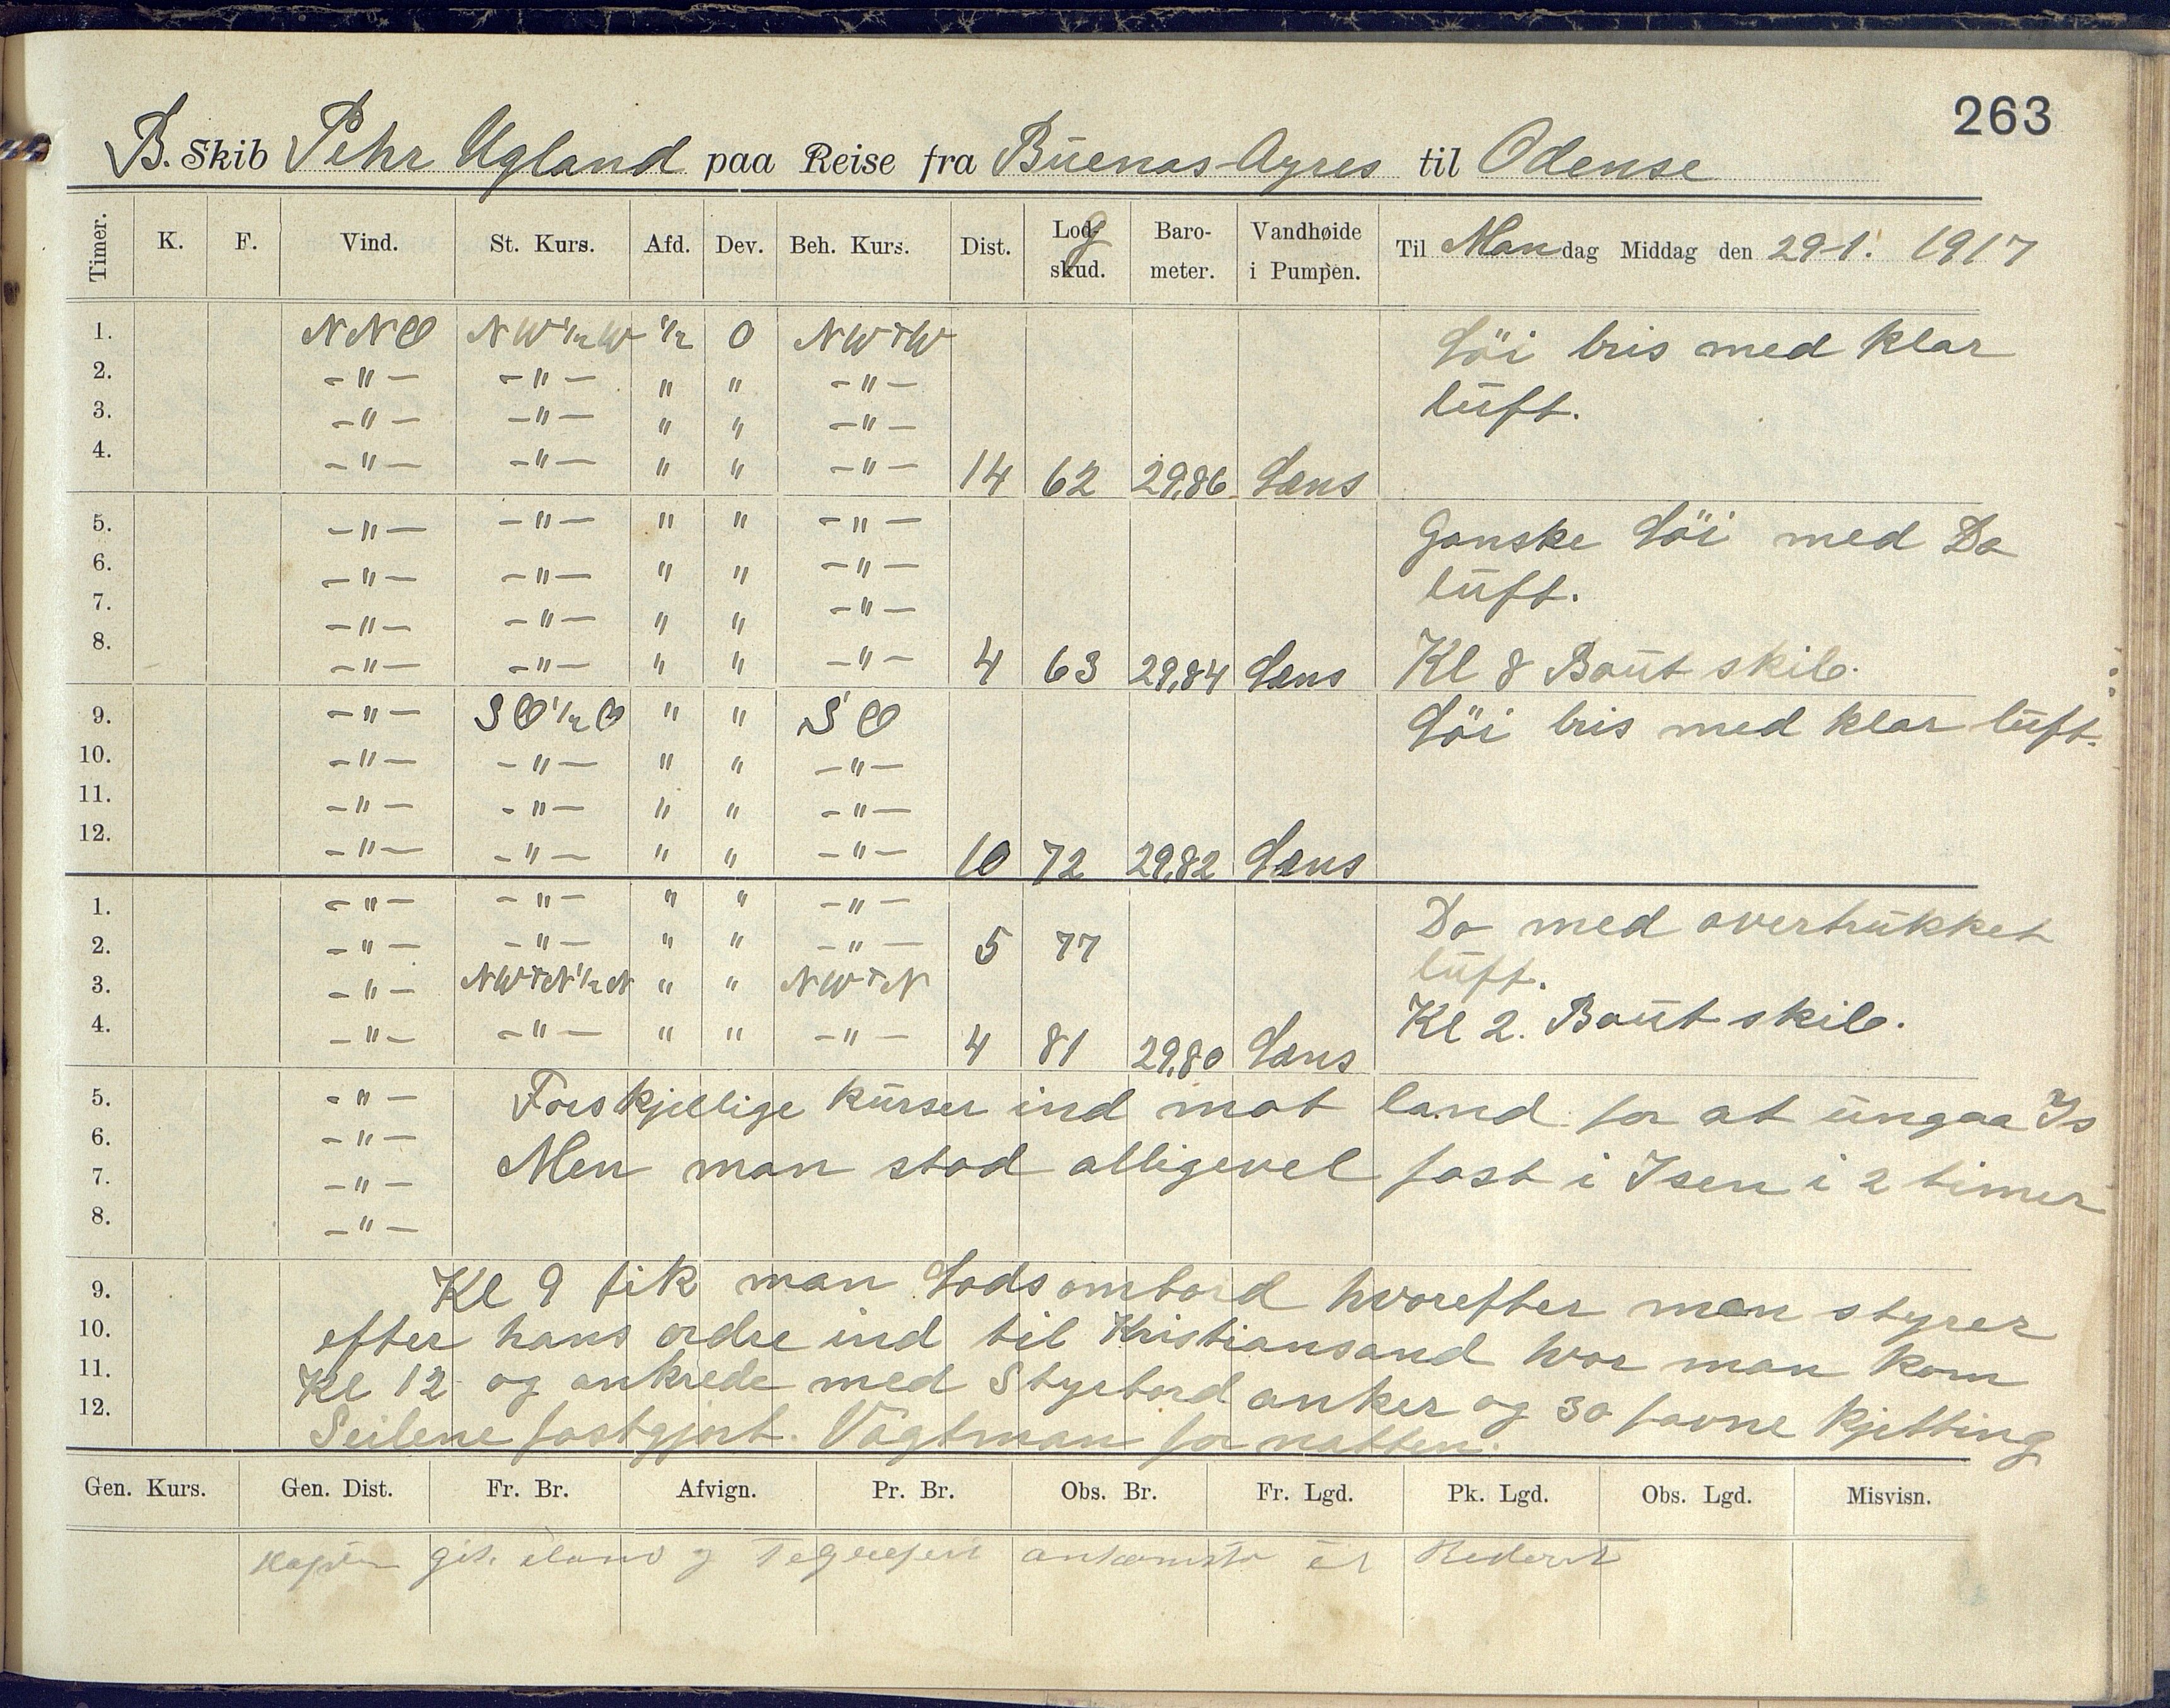 263
B. Skib Pehr Ugland paa Reise fra Buenas-Ayres til Odense
Timer. K. F. Vind. St. Kurs. Afd. Dev. Beh. Kurs. Dist. Logskud. Barometer. Vandhøide i Pumpen. Til Mandag Middag den 29-1. 1917
1. NNO NW½W ½ 0 NWTW Löi bris med klar
2. -"- -"- " " -"- luft.
3. -"- -"- " " -"-
4. -"- -"- " " -"- 14 62 29,86 Læns
5. -"- -"- " " -"- Ganske Löi med Do
6. -"- -"- " " -"- luft.
7. -"- -"- " " -"-
8. -"- -"- " " -"- 4 63 29,84 Læns Kl 8 Baut skib.
9. -"- SO½O " " SO Löi bris med klar luft.
10. -"- -"- " " -"-
11. -"- -"- " " -"-
12. -"- -"- " " -"- 10 72 29,82 Læns
1. -"- -"- " " -"- Do med overtrukket
2. -"- -"- " " -"- 5 77 luft.
3. -"- NWTN½N " " NWTN Kl 2. Baut skib.
4. -"- -"- " " -"- 4 81 29,80 Læns
5. -"- Forskjellige kurser ind mot land for at ungaa Is
6. -"- Men man stod alligevel fast i Isen i 2 timer
7. -"-
8. -"-
9. Kl 9 fik man Lods ombord hvorefter man styrer
10. efter hans ordre ind til Kristiansand hvor man kom
11. Kl 12 og ankrede med Styrbord anker og 30 favne kjetting
12. Seilene fastgjort. Vagtman for natten.
Gen. Kurs. Gen. Dist. Fr. Br. Afvign. Pr. Br. Obs. Br. Fr. Lgd. Pk. Lgd. Obs. Lgd. Misvisn.